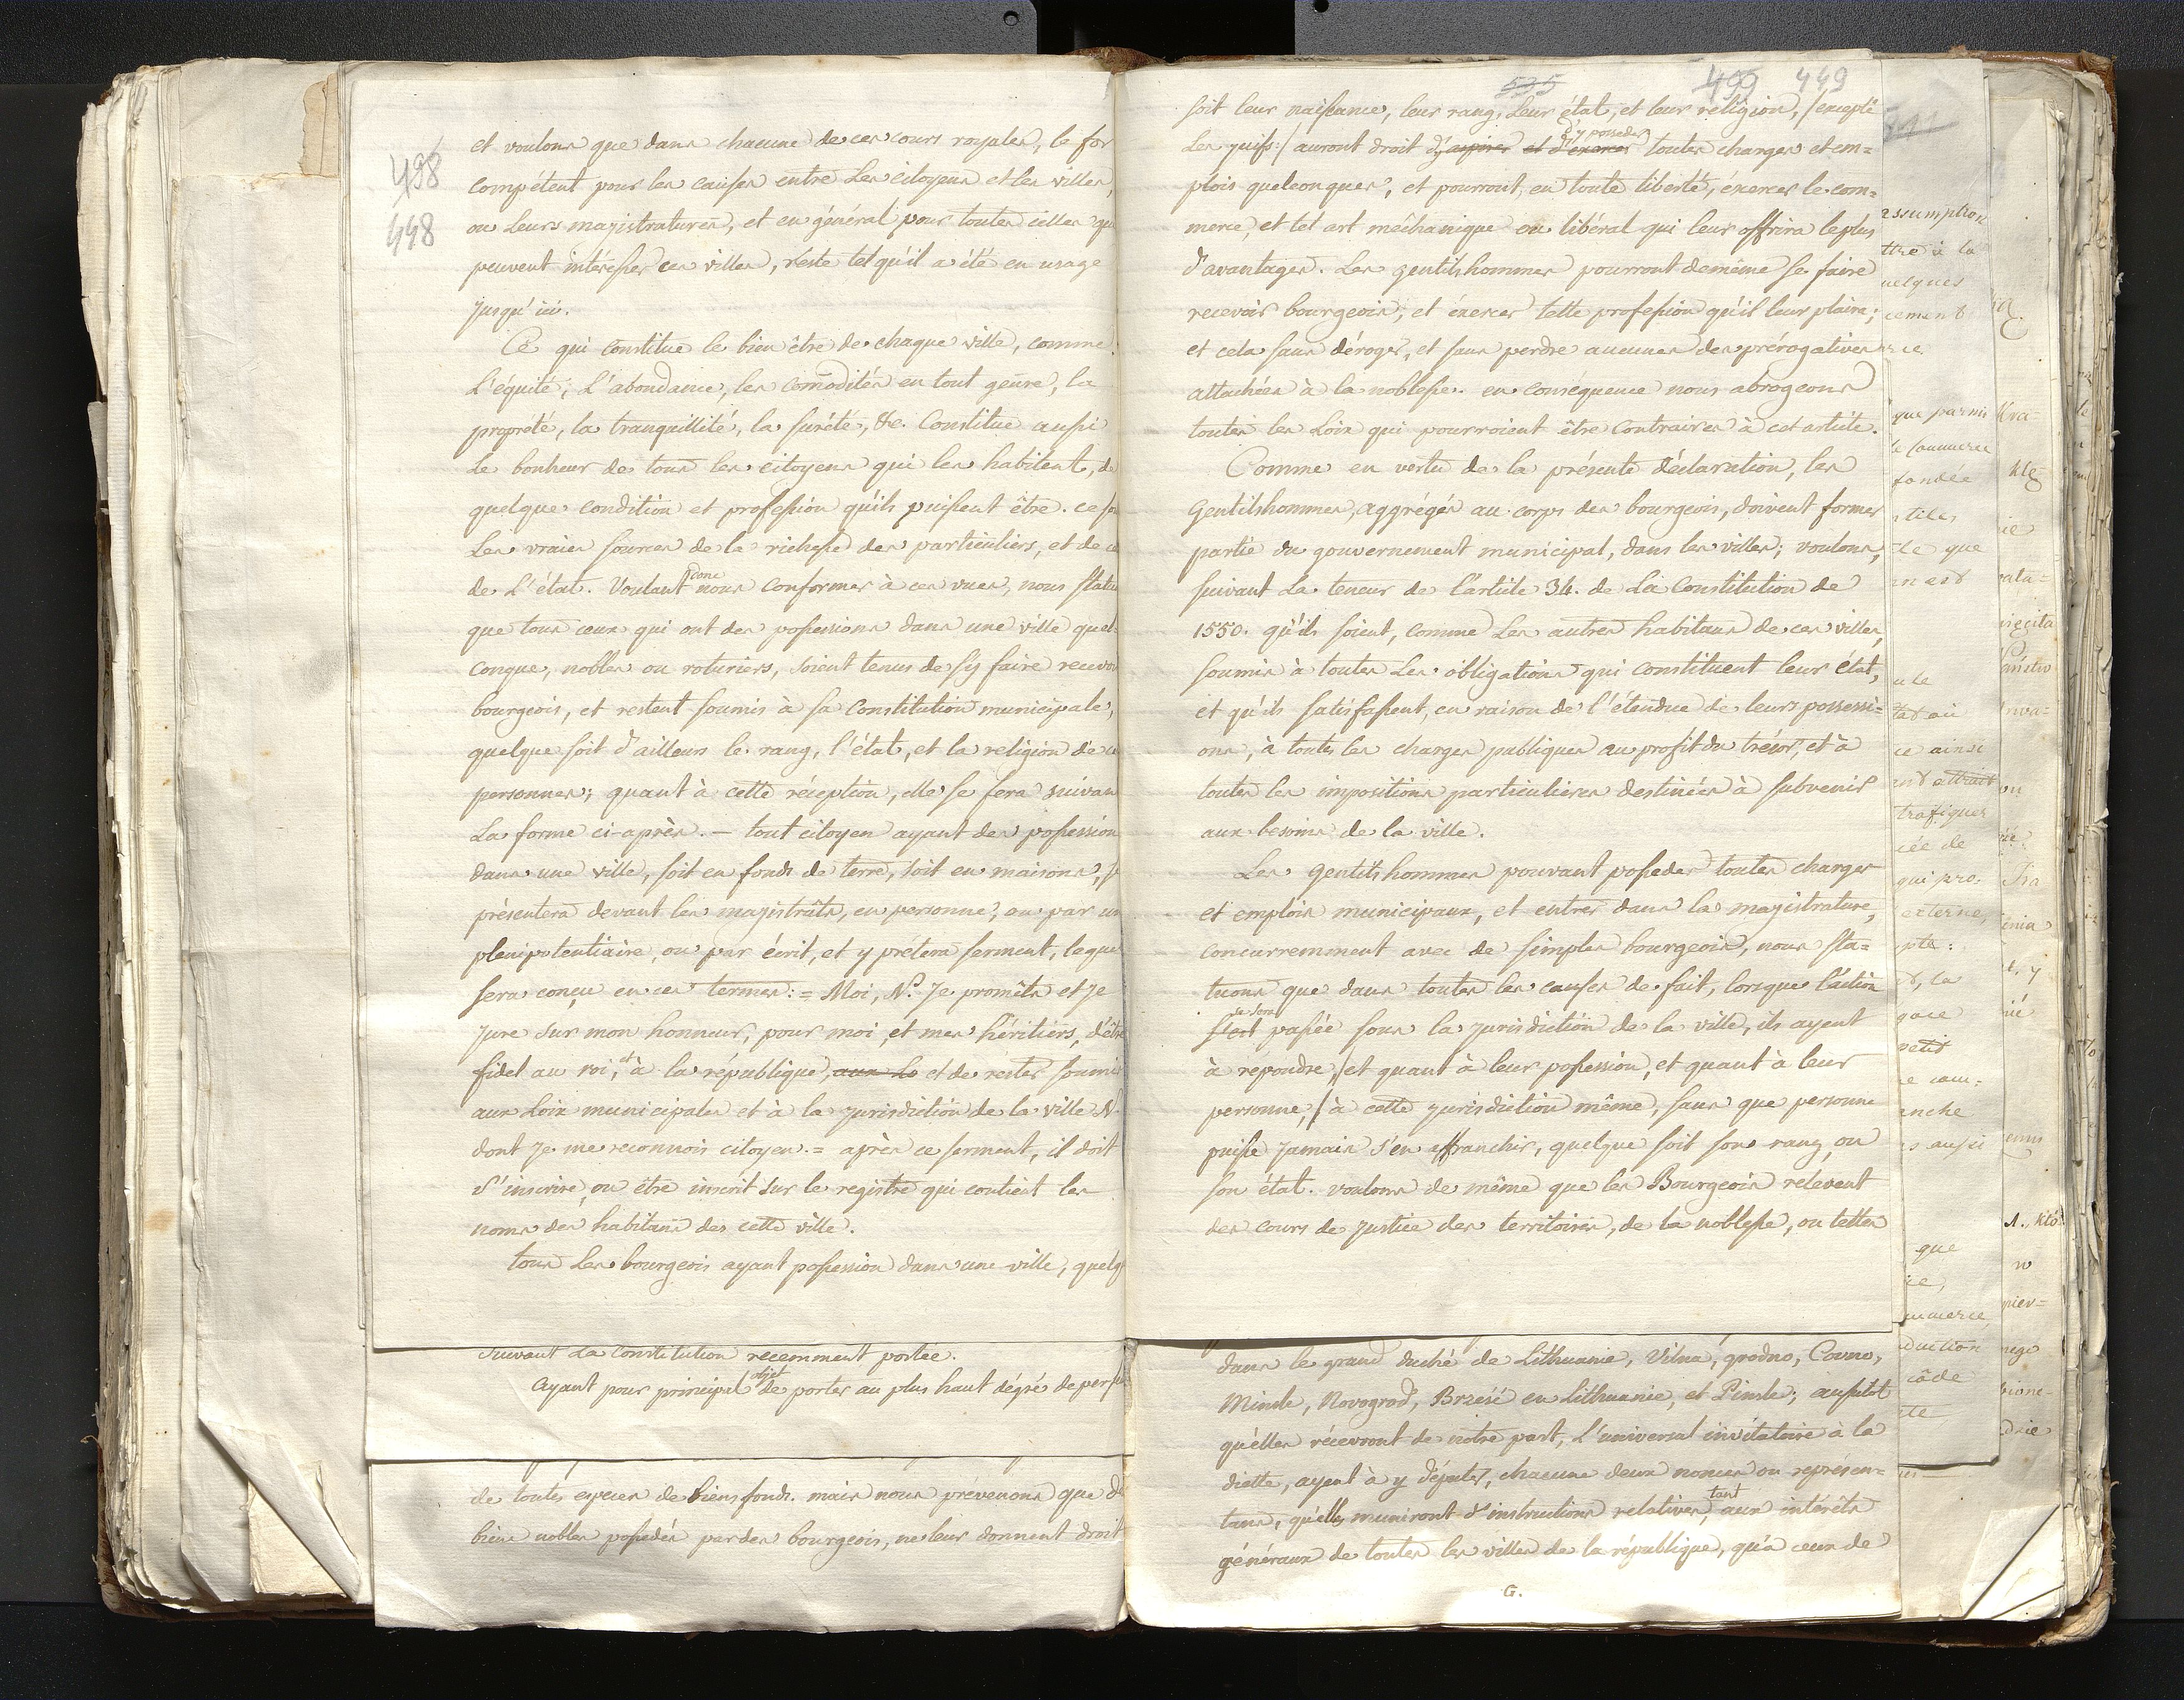 498
448
et voulons que dans chacune de ces cours royales, le for
compétent pour les causes entre Les citoyens et les villes,
ou Leurs magistratures, et en général pour toutes celles qu
peuvent intéresser ces villes, réste tel qu'il a été en usage
jusqu'ici.
Ce qui Constitue le bien être de chaque ville, comme
L'équité; L'abondance, les comodités en tout genre, la
propreté, la tranquillité, la sureté, &c. Constitue aussi
Le bonheur de tous les citoyens qui les habitent, de
quelque condition et profession qu'ils puissent être. ce
Les vraies sources de la richesse des particuliers, et de
de L'état. Voulant donc nous conformer à ces vues, nous statu
que tous ceux qui ont des possessions dans une ville quel-
conque, nobles ou roturiers, soient tenus de s'y faire recevoi
bourgeois, et restent soumis à sa Constitution municipale,
quelque soit d'ailleurs le rang, l'état, et la religion de
personnes; quant à cette réception, elle se fera suivan
La forme ci-après. — tout citoyen ayant des possession
dans une ville, soit en fonds de terre, soit en maisons,
présentera devant les magistrâts, en personne, ou par un
plenipotentiaire, ou par écrit, et y prétera serment, leque
sera conçu en ces termes: = Moi, N. Je promèts et Je
Jure sur mon honneur, pour moi, et mes héritiers, d'être
fidel au roi, et à la république, aux Lo et de rester soumis
aux Loix municipales et à la jurisdiction de la ville N.
dont Je me reconnois citoyen. = après ce serment, il doit
s'inscrire, ou être inscrit sur le registre qui contient les
noms des habitans des cette ville.
tous Les bourgeois ayant possession dans une ville, quelq
suivant La Constitution récemment portée.
Ayant pour principal objet de porter au plus haut dégré de perf
de toutes especes de biens fonds. mais nous prévenons que d
biens nobles possedés par des bourgeois, ne leur donnent droit
535 499 449
soit leur naissance, leur rang, Leur état, et leur religion, /excepté
Les juifs:/ auront droit d'y aspirer et d'exercer d'y posseder toutes charges et em=
plois quelconques, et pourront, en toute liberté, éxercer le com=
merce, et tel art méchanique ou libéral qui leur offrira le plus
d'avantages. Les gentilshommes pourront de même se faire
recevoir bourgeois, et éxercer telle profession qu'il leur plaira;
et cela sans déroger, et sans perdre aucunes des prérogatives
attachées à la noblesse. en conséquence nous abrogeons
toutes les Loix qui pourroient être Contraires à cet article.
Comme en vertu de la présente déclaration, les
Gentilshommes, aggrégés au corps des bourgeois, doivent former
partie du gouvernement municipal, dans les villes; voulons,
suivant La teneur de l'article 34. de La Constitution de
1550. qu'ils soient, comme Les autres habitans de ces villes,
soumis à toutes Les obligations qui constituent leur état,
et qu'ils satisfassent, en raison de l'étendue de leurs possessi=
ons, à toutes les charges publiques au profit du trésor, et à
toutes les impositions particulieres destinées à subvenir
aux besoins de la ville.
Les Gentilshommes pouvant posseder toutes charges
et emplois municipaux, et entrer dans la magistrature,
concurremment avec de simples bourgeois, nous sta=
tuons que dans toutes les causes de fait, lorsque l'action
s'est se sera passée sous la jurisdiction de la ville, ils ayent
à répondre, /et quant à leur possession, et quant à leur
personne,/ à cette jurisdiction même, sans que personne
puisse jamais s'en affranchir, quelque soit son rang, ou
son état. voulons de même que les Bourgeois rélevent
des cours de justice des territoires, de la noblesse, ou telles
dans le grand duché de Lithuanie, Vilna, grodno, Covno,
Minsk, Novogrod, Brzesć en Lithuanie, et Pinsk; aussitot
qu'elles récevront de notre part, L'universal invitatoire à la
diette, ayent à y députer, chacune deux nonces ou représen=
tans, qu'elles muniront d'instructions relatives, tant aux intérêts
généraux de toutes les villes de la république, qu'à ceux de
G.
assumption
ttre à la
uelques
cement
que parmi
le commerce
fondée
tiles
te que
ce ainsi
trafiquer
qui pro-
externe,
petit
anche
s aussi
que
mmerce,
duction